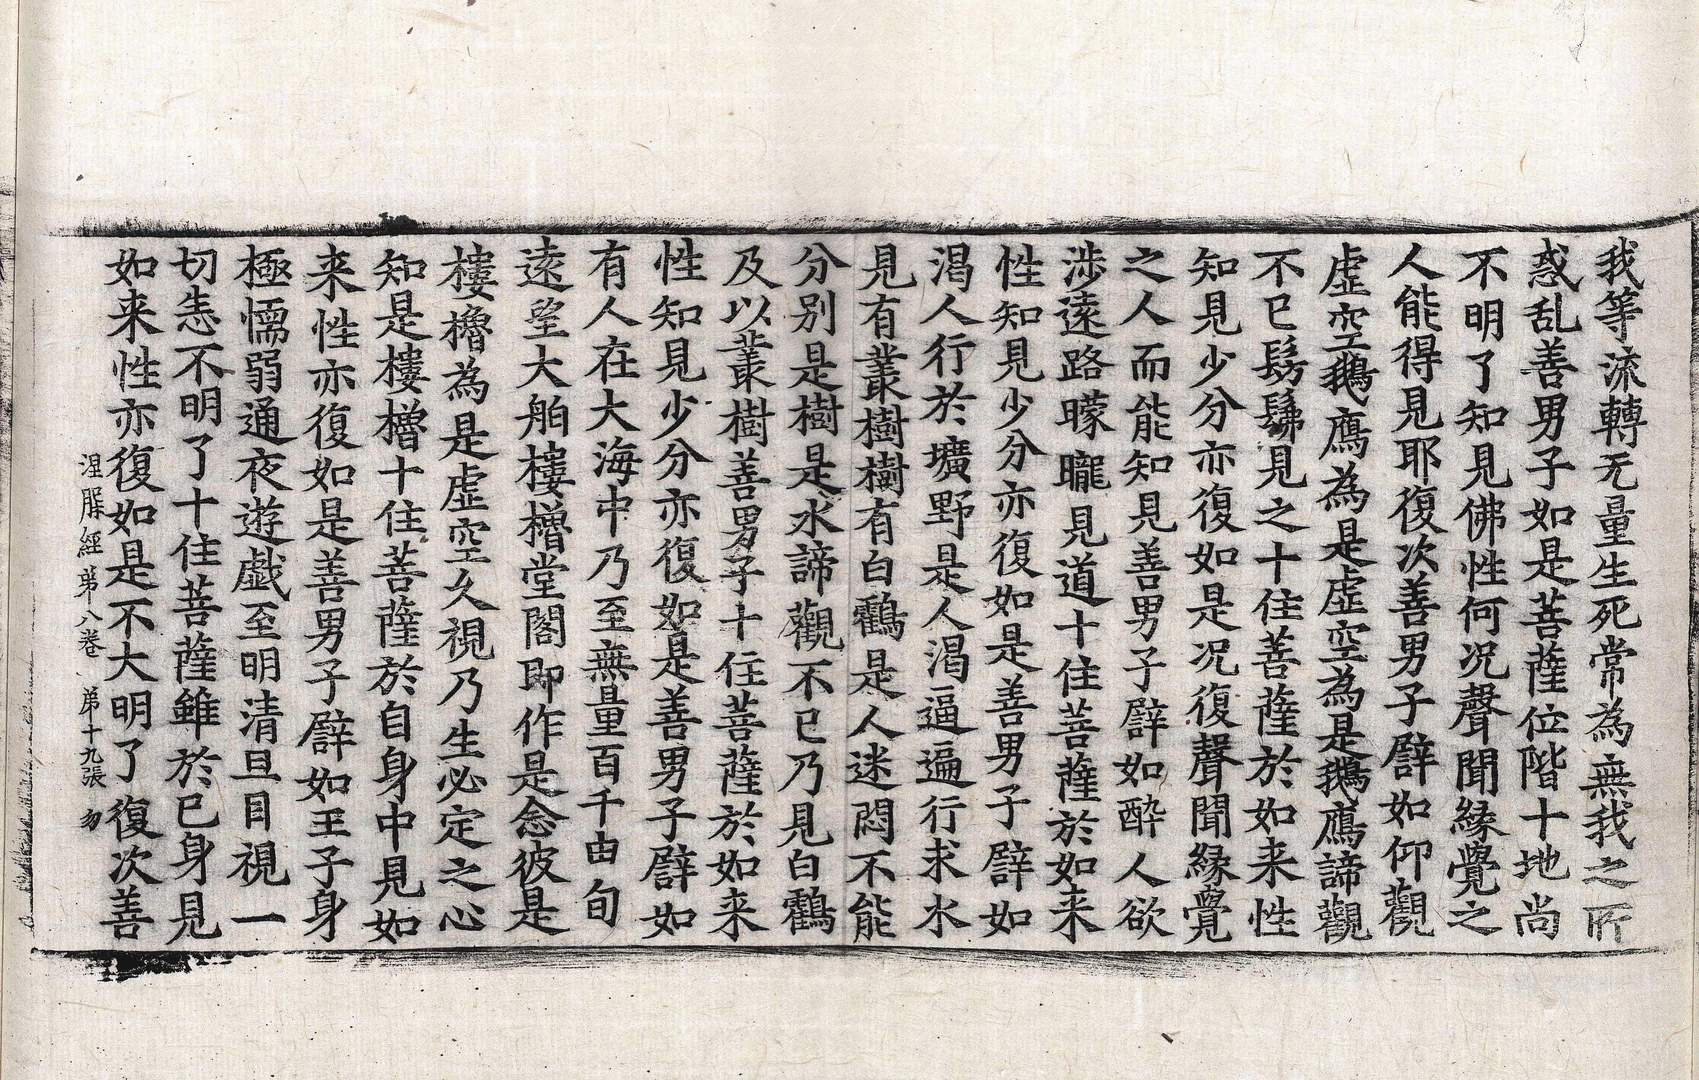 我等流轉无量生死常為無我之所
惑乱善男子如是菩薩位階十地尚
不明了知見佛性何况聲聞緣覺之
人能得見耶復次善男子譬如仰觀
虛空鵝鴈為是虛空為是鵝鴈諦觀
不已髣髴見之十住菩薩於如来性
知見少分亦復如是况復聲聞緣覺
之人而能知見善男子譬如醉人欲
涉遠路曚曨見道十住菩薩於如来
性知見少分亦復如是善男子譬如
渴人行於壙野是人渴逼遍行求水
見有叢樹樹有白鸛是人迷悶不能
分別是樹是水諦觀不已乃見白鸛
及以叢樹善男子十住菩薩於如来
性知見少分亦復如是善男子譬如
有人在大海中乃至無量百千由旬
遠望大舶樓櫓堂閣即作是念彼是
樓櫓為是虛空久視乃生必定之心
知是樓櫓十住菩薩於自身中見如
来性亦復如是善男子譬如王子身
極懦弱通夜遊戲至明清旦目視一
切悉不明了十住菩薩雖於已身見
如来性亦復如是不大明了復次善
涅槃經 第八卷 第十九張